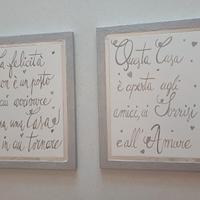 La felicità
non è un posto
cui arrivare
ma una Casa
in cui tornare
Questa Casa
è aperta agli
amici, ai Sorrisi
e all'Amore